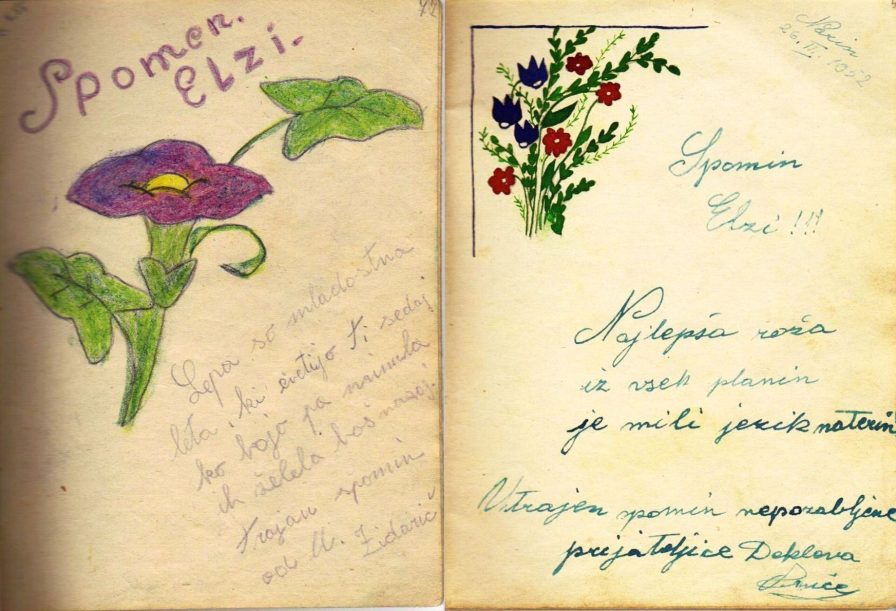 Spomen.
Elzi.
Lepa so mladostna
leta, ki cvetijo ti sedaj
ko bojo pa minula
ih želela boš nazaj.
trajan spomin
od M. Zidarič
26. III. 1952
Spomin
Elzi!!!
Najlepša roža
iz vseh planin
je mili jezik materin
V trajen spomin nepozabljene
prijateljice Deklova